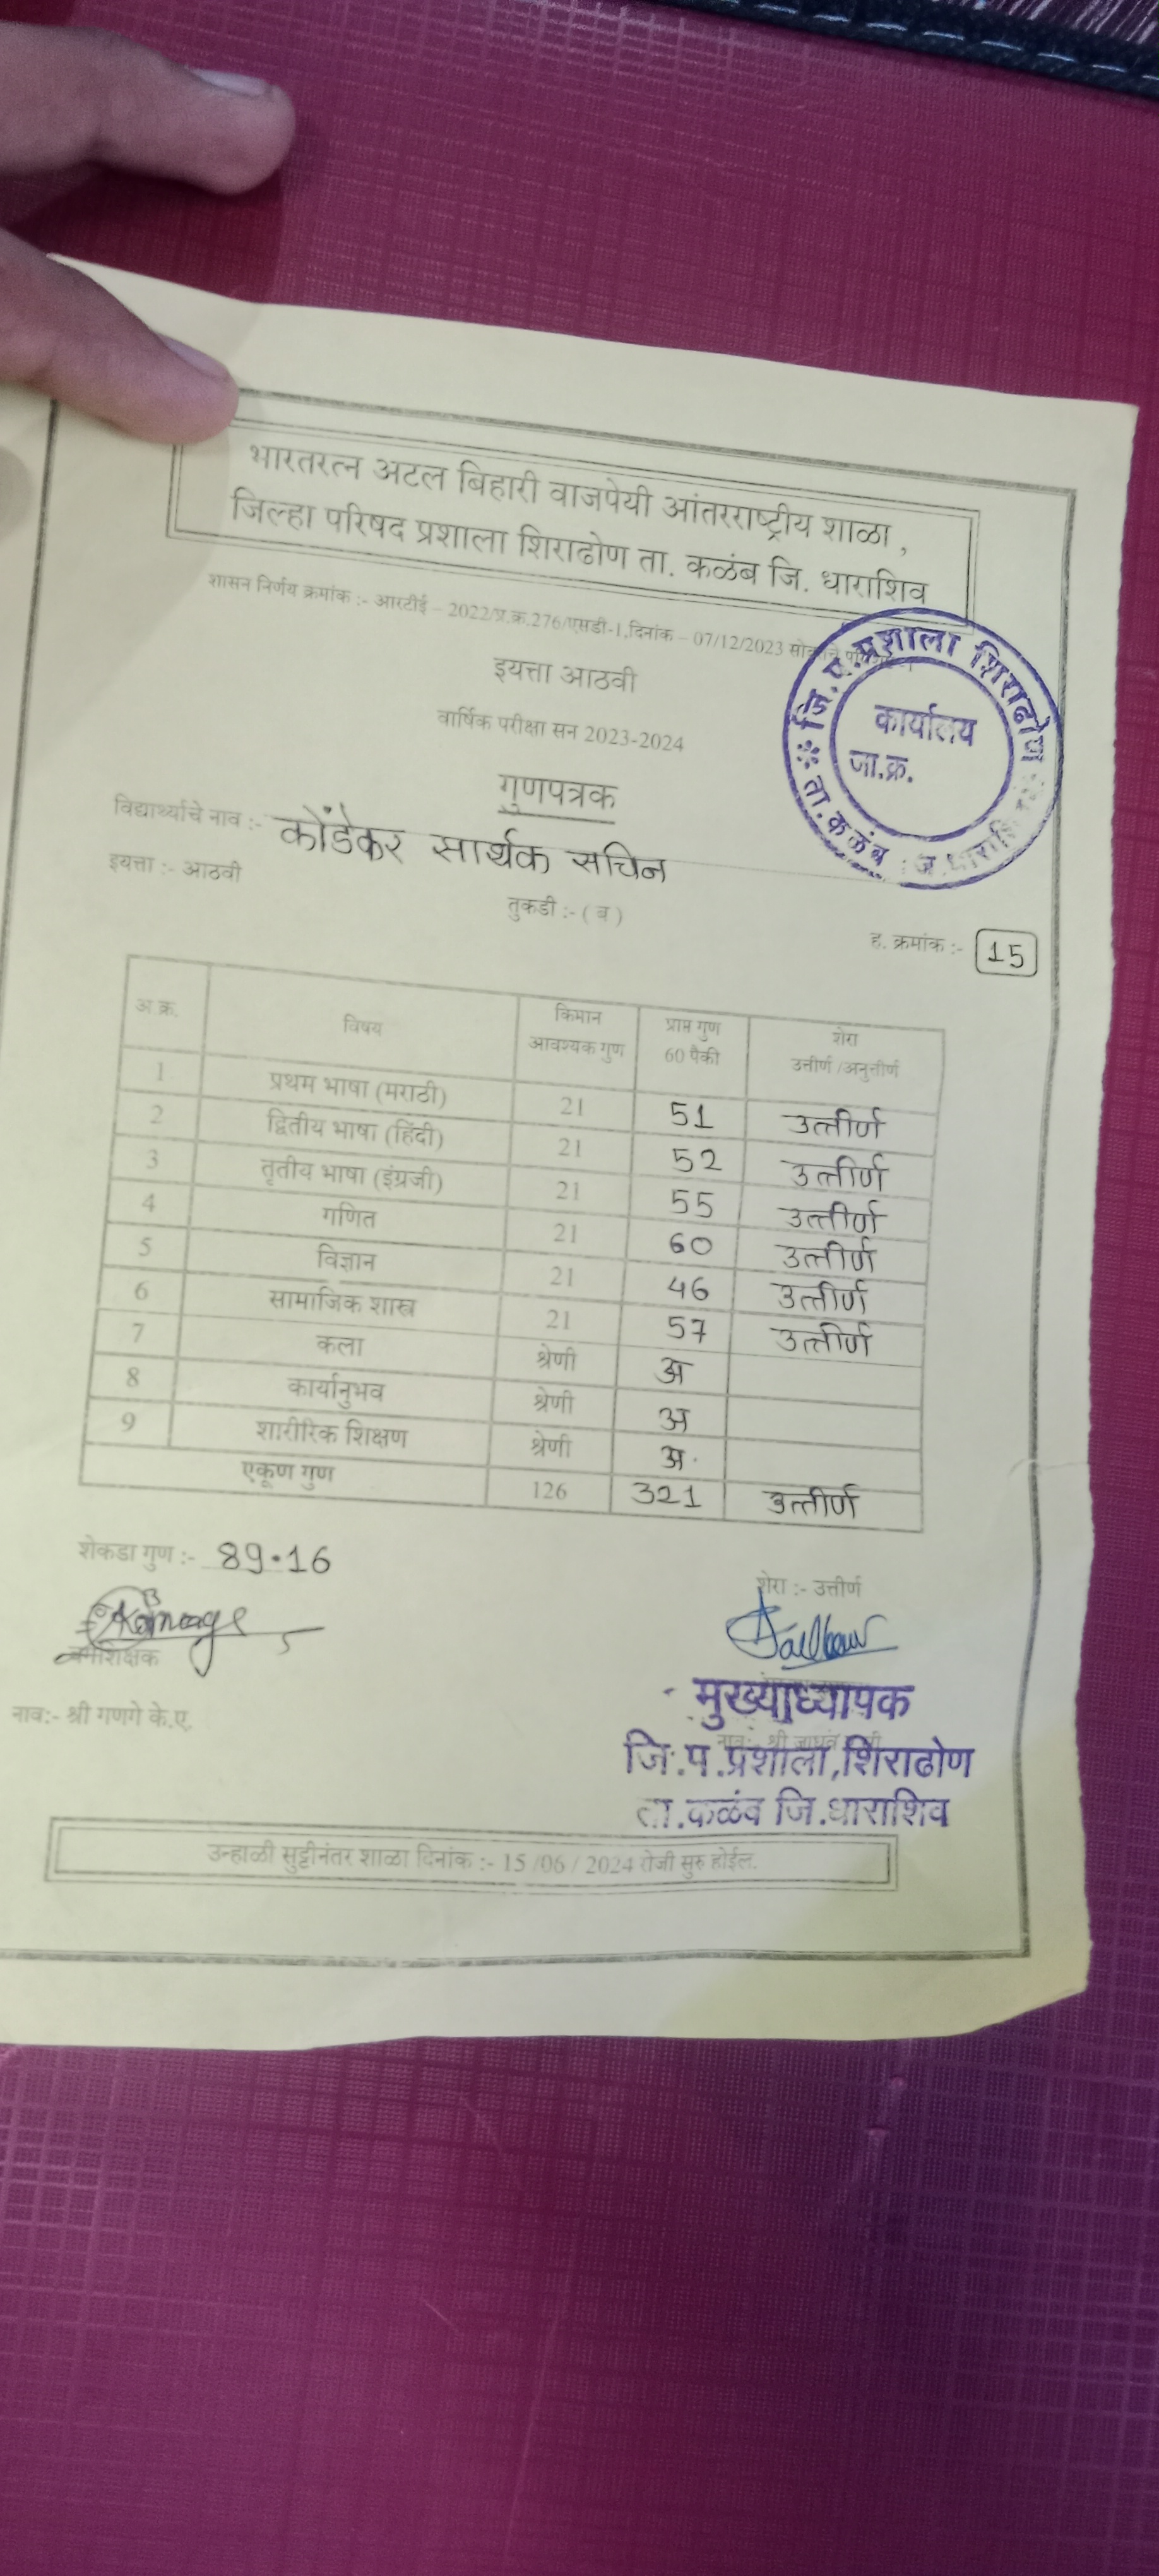 भारतरत्न अटल बिहारी वाजपेयी आंतरराष्ट्रीय शाळा ,
जिल्हा परिषद प्रशाला शिराढोण ता. कळंब जि. धाराशिव
शासन निर्णय क्रमांक :- आरटीई – 2022/प्र.क्र.276/एसडी-1,दिनांक – 07/12/2023
जि.प.प्रशाला शिराढोण
ता.कळंब
कार्यालय
जा.क्र.
इयत्ता आठवी
वार्षिक परीक्षा सन 2023-2024
गुणपत्रक
विद्यार्थ्याचे नाव :- कोंडेकर सार्थक सचिन
इयत्ता :- आठवी तुकडी :- ( ब ) ह. क्रमांक :- 15
अ.क्र. विषय किमान आवश्यक गुण प्राप्त गुण 60 पैकी शेरा उत्तीर्ण /अनुत्तीर्ण
1 प्रथम भाषा (मराठी) 21 51 उत्तीर्ण
2 द्वितीय भाषा (हिंदी) 21 52 उत्तीर्ण
3 तृतीय भाषा (इंग्रजी) 21 55 उत्तीर्ण
4 गणित 21 60 उत्तीर्ण
5 विज्ञान 21 46 उत्तीर्ण
6 सामाजिक शास्त्र 21 57 उत्तीर्ण
7 कला श्रेणी अ
8 कार्यानुभव श्रेणी अ
9 शारीरिक शिक्षण श्रेणी अ
एकूण गुण 126 321 उत्तीर्ण
शेकडा गुण :- 89.16
शेरा :- उत्तीर्ण
नाव:- श्री गणगे के.ए.
मुख्याध्यापक
जि.प.प्रशाला,शिराढोण
ता.कळंब जि.धाराशिव
उन्हाळी सुट्टीनंतर शाळा दिनांक :- 15 /06 / 2024 रोजी सुरु होईल.